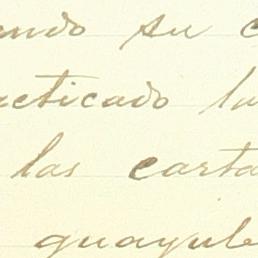 ando su c
acticado la
las carta
guayule